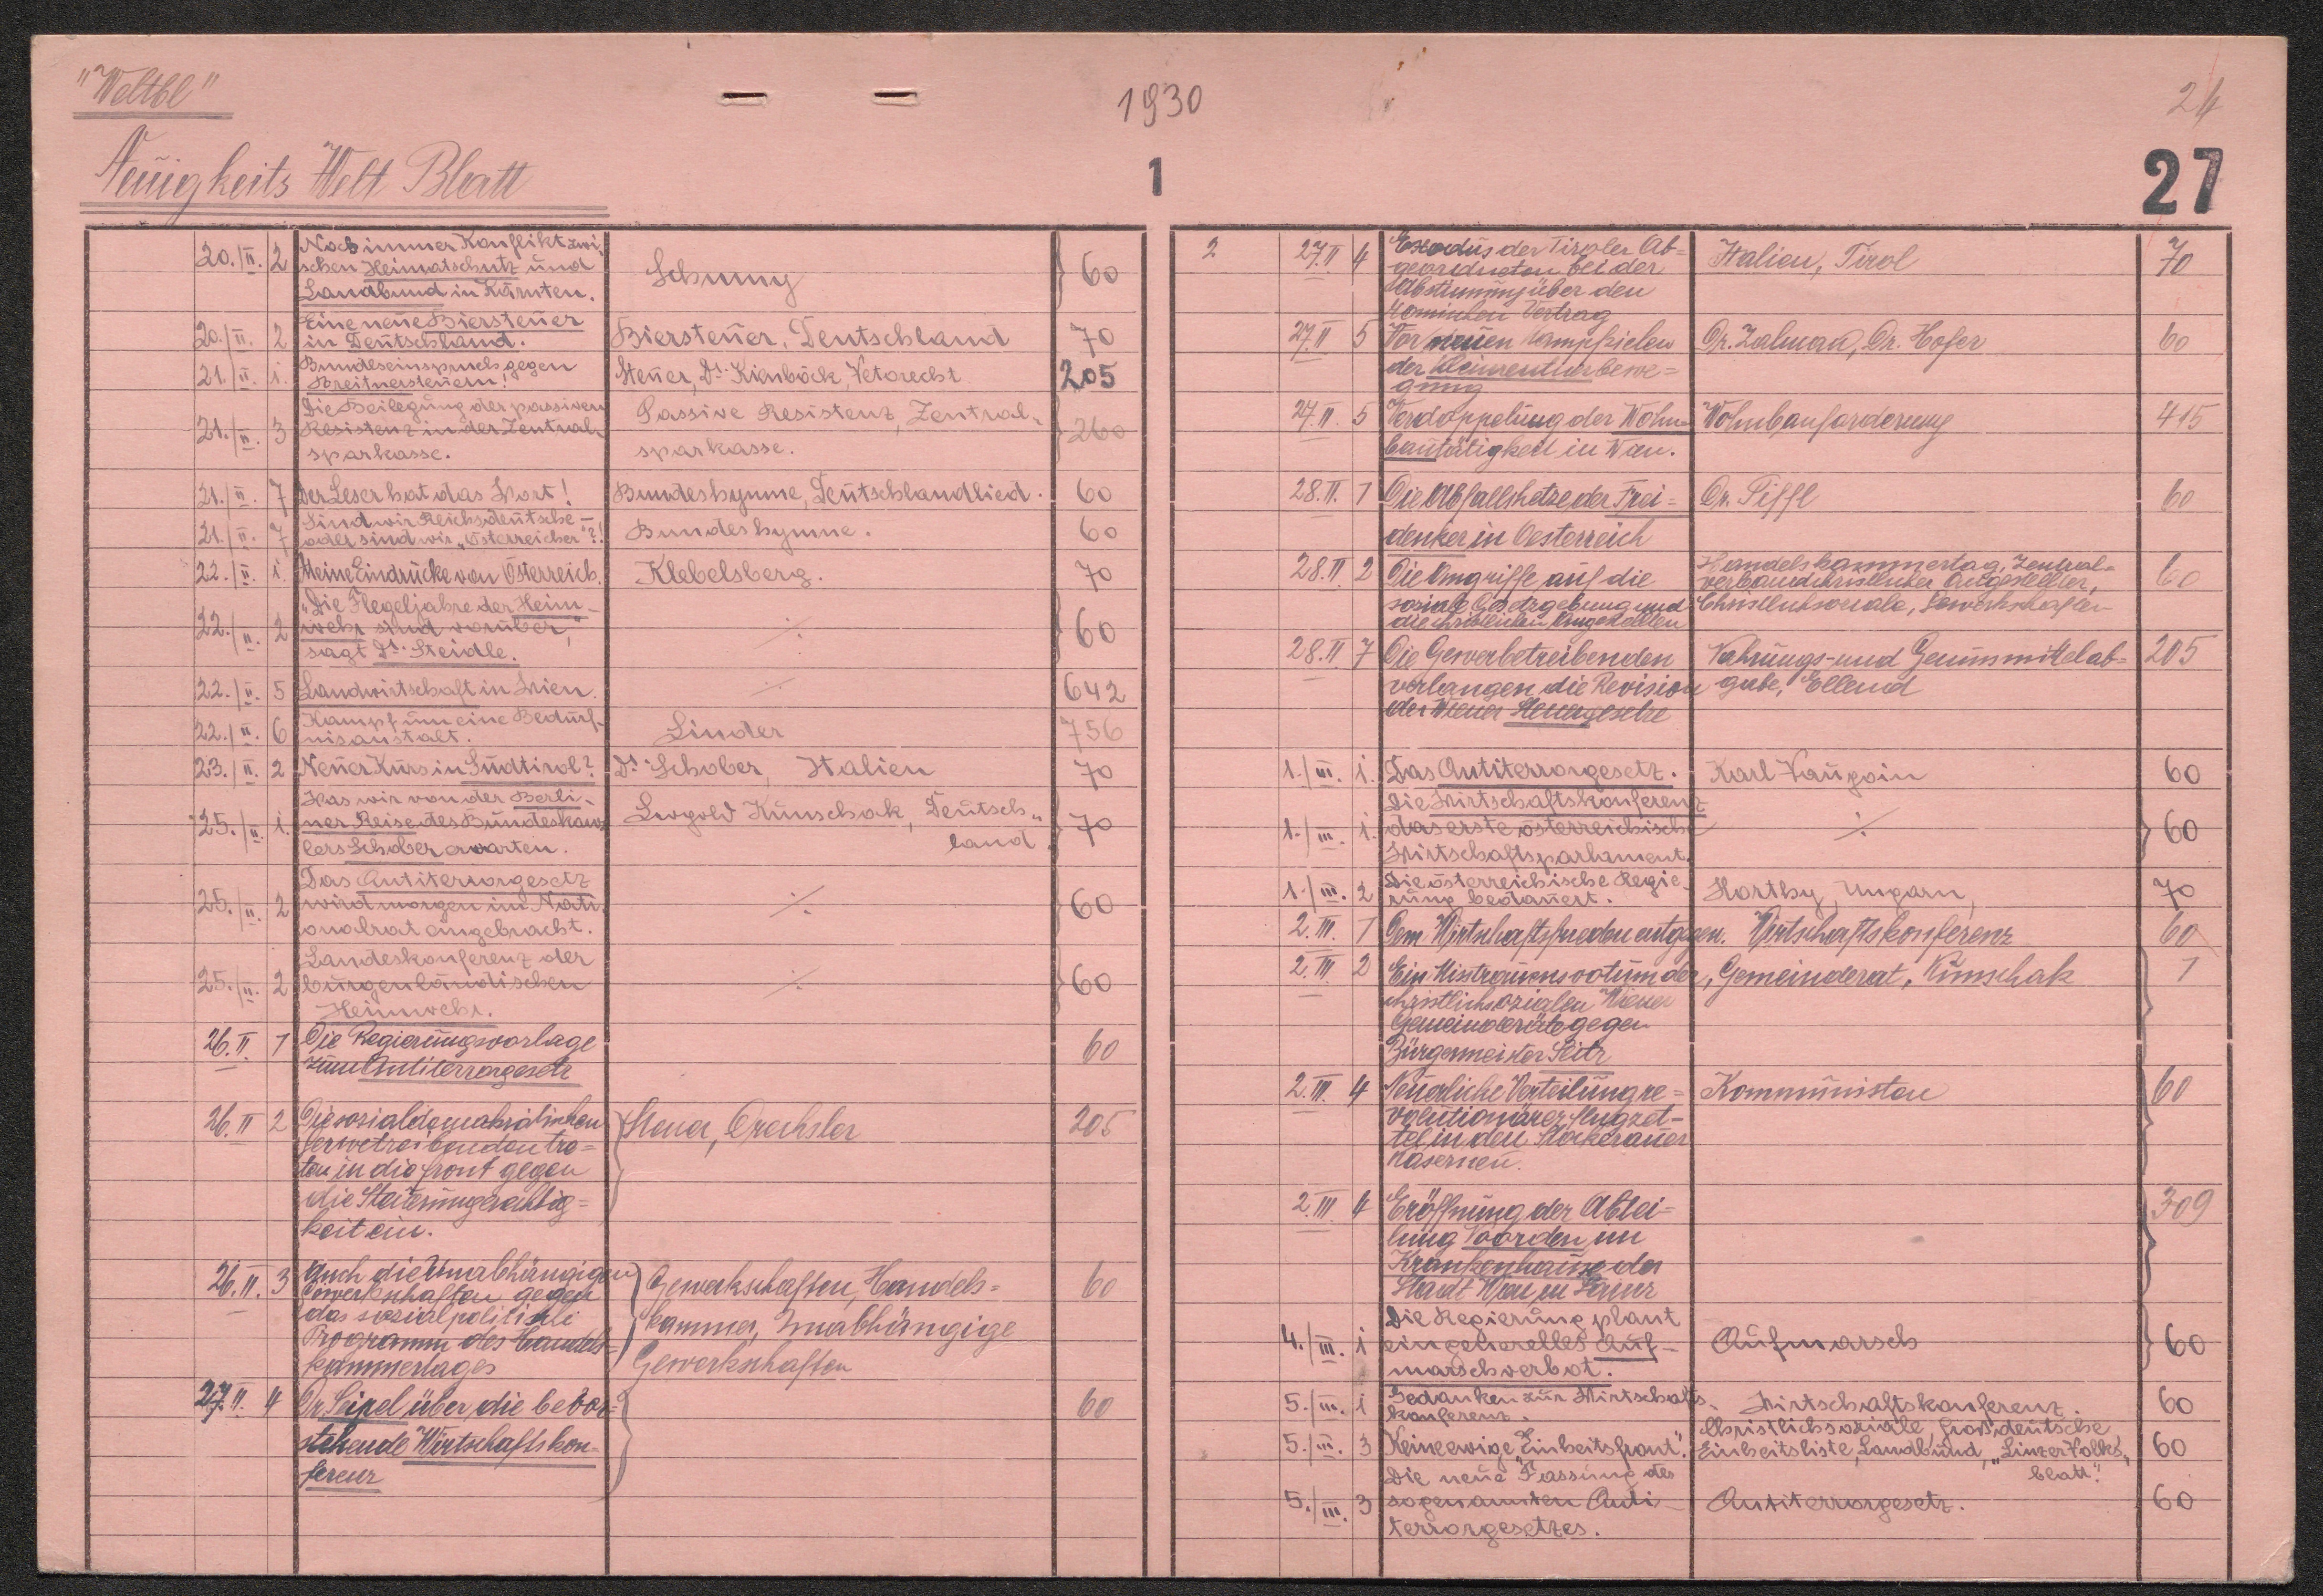 "Weltbl"
1930
24
Neuigkeits Welt Blatt
1
27
20./II. 2 Noch immer Konflikt zwi-
schen Heimatschutz und Schumy 60
Landbund in Kärnten.
20./II. 2 Eine neue Biersteuer
in Deutschland. Biersteuer, Deutschland 70
21./II. i. Bundeseinspruch gegen
Breitnersteuern! Steuer, Dr. Kienböck, Vetorecht 205
Die Beilegung der passiven Passive Resistenz, Zentral-
21./II. 3 Resistenz in der Zentral- 260
sparkasse. sparkasse.
21./II. 7 Der Leser hat das Wort! Bundeshymne, Deutschlandlied. 60
Sind wir Reichsdeutsche –
21./II. 7 oder sind wir „Österreicher"?! Bundeshymne. 60
22./II. i. Meine Eindrücke von Österreich. Klebelsberg. 70
„Die Flegeljahre der Heim-
22./II. 2 wehr sind vorüber," ·/· 60
sagt Dr. Steidle.
22./II. 5 Landwirtschaft in Wien. ·/· 642
Kampf um eine Bedürf-
22./II. 6 nisanstalt. Linder 756
23./II. 2 Neuer Kurs in Südtirol? Dr. Schober, Italien 70
Was wir von der Berli-
25./II. i. ner Reise des Bundeskanz- Leopold Kunschak, Deutsch- 70
lers Schober erwarten. land.
Das Antiterrorgesetz
25./II. 2 wird morgen im Nati- ·/· 60
onalrat eingebracht.
Landeskonferenz der
25./II. 2 burgenländischen ·/· 60
Heimwehr.
26.II 1 Die Regierungsvorlage 60
zum Antiterrorgesetz
26.II 2 Die sozialdemokratischen Steuer, Drechsler 205
Gewerbetreibenden tre-
ten in die Front gegen
die
keit ein.
26.II. 3 Auch die Unabhängigen Gewerkschaften, Handels- 60
Gewerkschaften gegen
das sozialpolitische kammer, Unabhängige
Programm des Handels-
kammertages Gewerkschaften
27.II. 4 Dr. Seipel über die bevor- 60
stehende Wirtschaftskon-
ferenz
2 27.II 4 Exodus der Tiroler Ab- Italien, Tirol 70
geordneten bei der
Abstimmung über den
Römischen Vertrag
27.II 5 Vor neuen Kampfzielen Dr. Zalman, Dr. Hofer 60
der Heimentlurbewe-
gung
27.II. 5 Verdoppelung der Wohn- Wohnbauförderung 415
bautätigkeit in Wien.
28.II. 1 Die Abfallshetze der Frei- Dr. Piffl 60
denker in Oesterreich
28.II 2 Die Angriffe auf die Handelskammertag, Zentral-
verband christlicher Angestellter, 60
soziale Gesetzgebung und Christlichsoziale, Gewerkschaften
die christlichen Angestellten
28.II 7 Die Gewerbetreibenden Nahrungs- und Genussmittelab- 205
verlangen die Revision gabe, Ellend
der Wiener Steuergesetze
1./III. i. Das Antiterrorgesetz. Karl Vaugoin 60
Die Wirtschaftskonferenz
1./III. i. das erste österreichische ·/· 60
Wirtschaftsparlament.
1./III. 2 Die österreichische Regie-
rung bedauert. Horthy, Ungarn, 70
2.III. 1 Dem Wirtschaftsfrieden entgegen. Wirtschaftskonferenz 60
2.III 2 Ein Misstrauensvotum der Gemeinderat, Kunschak 1
christlichsozialen Wiener
Gemeinderäte gegen
Bürgermeister Seitz
2.III. 4 Neuerliche Verteilung re- Kommunisten 60
volutionärer Flugzet-
tel in den Stockerauer
Kasernen.
2.III 4 Eröffnung der Abtei- 309
lung im
Krankenhause der
Stadt Wien in Lainz
Die Regierung plant
4./III. i ein generelles Auf- Aufmarsch 60
marschverbot.
5./III. i Gedanken zur Wirtschafts- Wirtschaftskonferenz. 60
konferenz.
Christlichsoziale, Großdeutsche
5./III. 3 Keine ewige „Einheitsfront". Einheitsliste, Landbund, „Linzer Volks- 60
blatt".
Die neue Fassung des
5./III. 3 sogenannten Anti- Antiterrorgesetz. 60
terrorgesetzes.